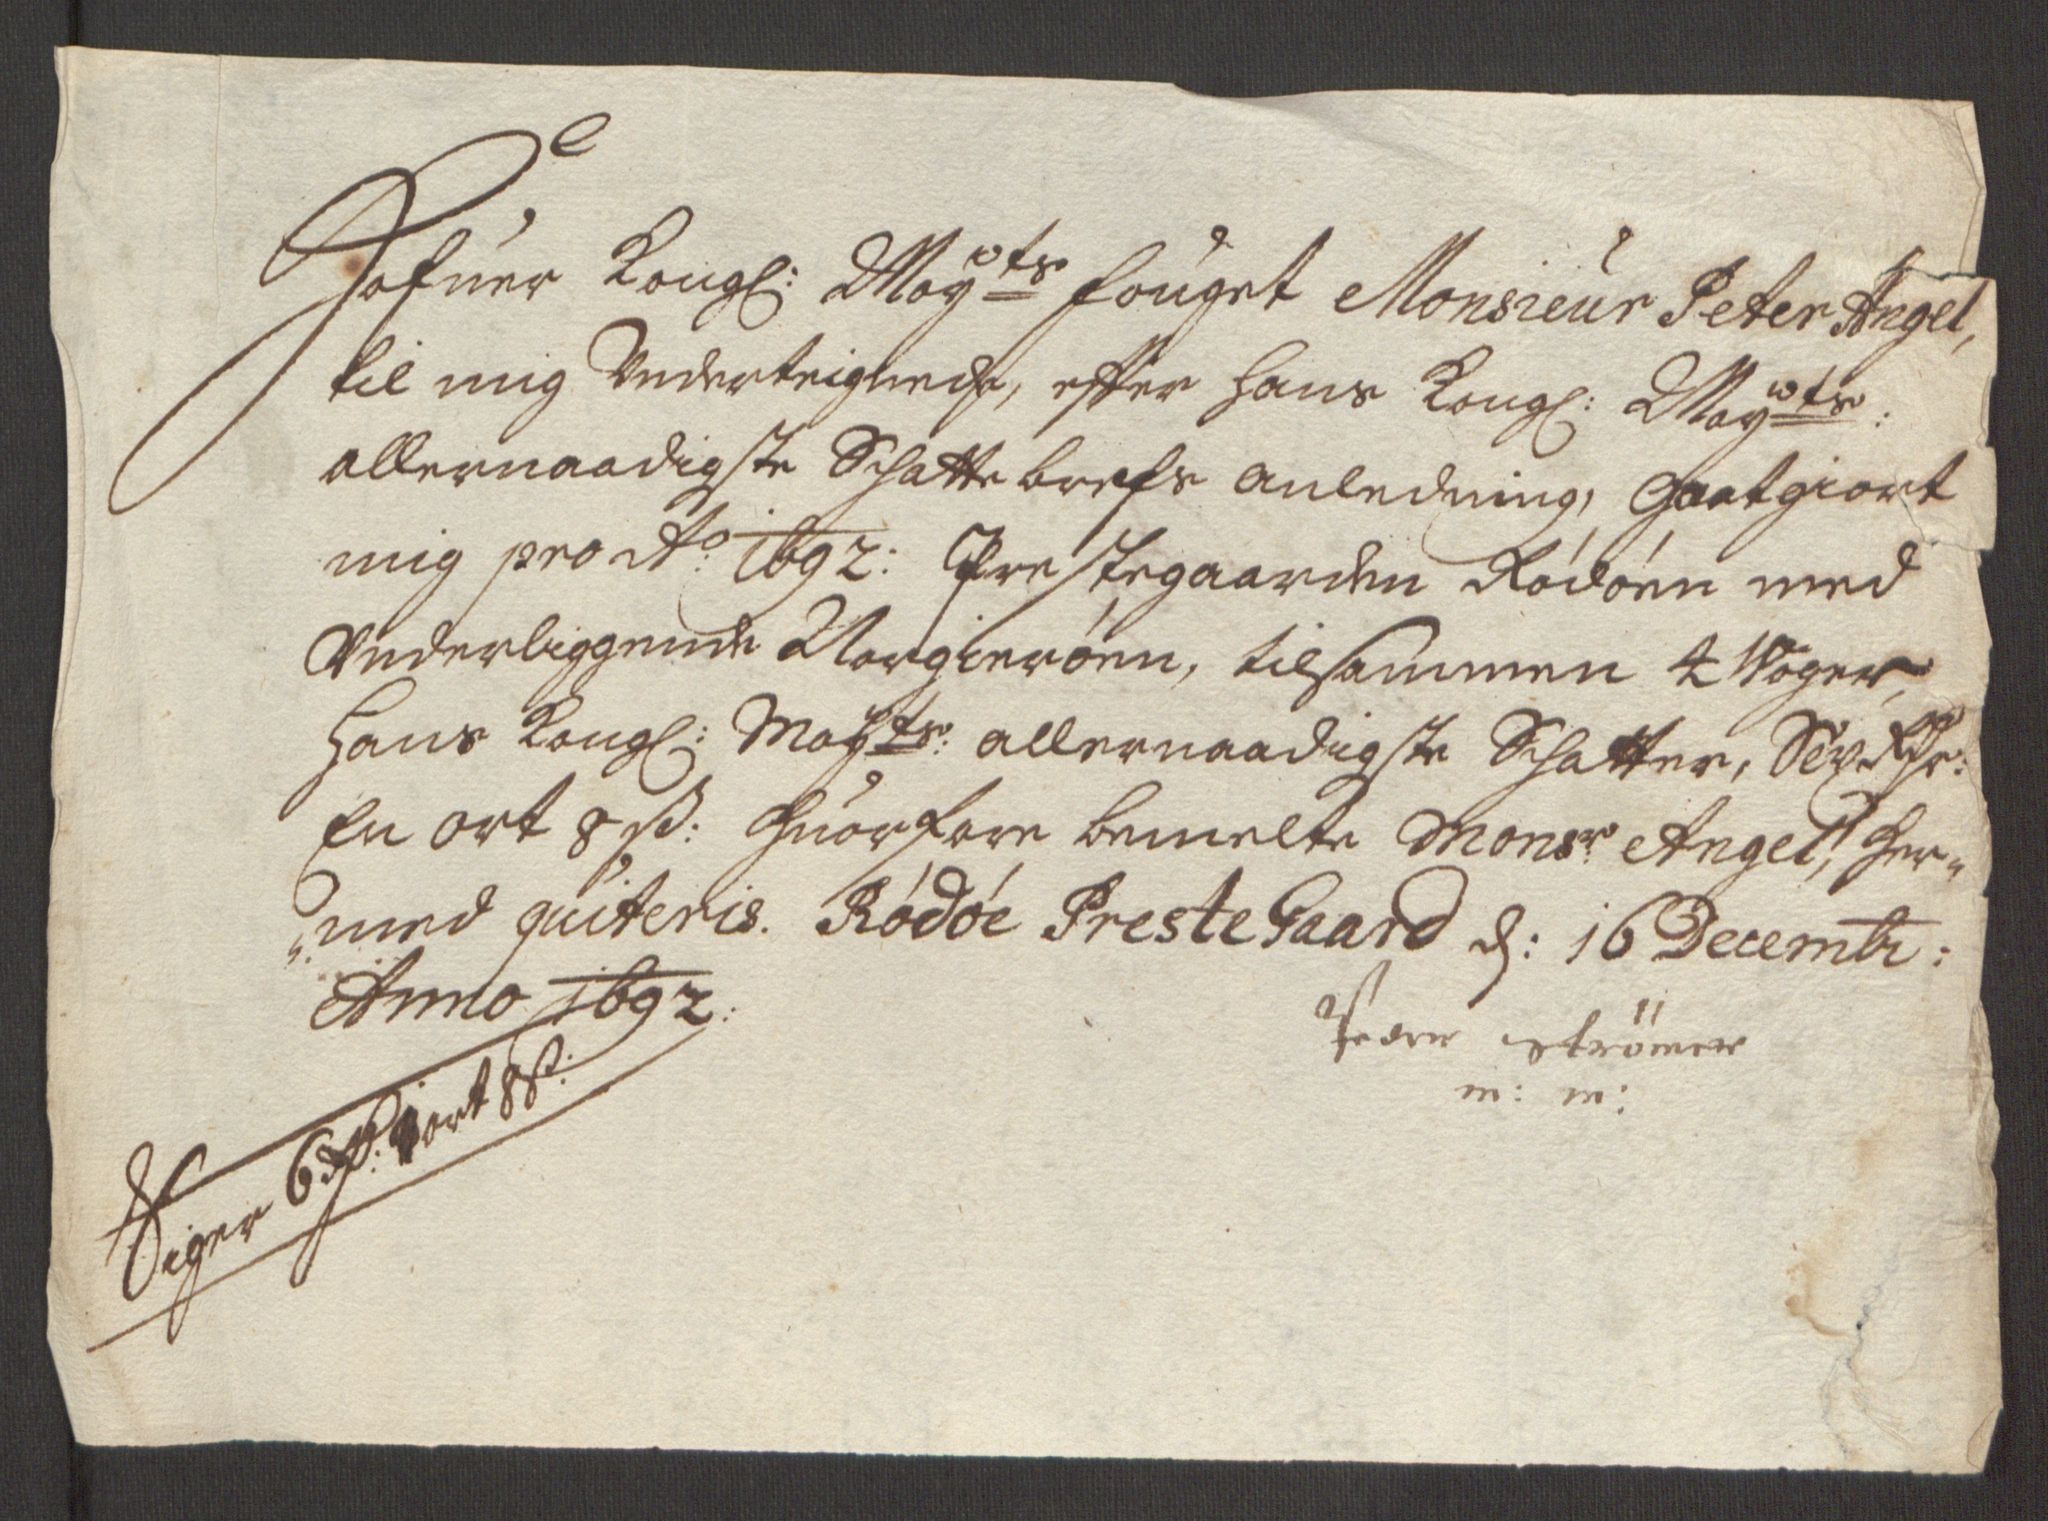 Hafuer Kongl: Mayts fouget Monsieur Peter Angel,
til mig Underteignede, effter hans Kongl: Mayts:
allernaadigste Schatte brefs anledning, Gaatgiort
mig pro Ao: 1692: Prestegaarden Rödöen med
Underliggende Norgieröen, tilsammen 4 Woger,
hans Kongl: Mayts: allernaadigste Schatter, Sex Rdr:
En ort 8 ß: Huorfore bemelte Monsr Angel, her-
med quiteris. Rödöe Preste Gaard d: 16 Decembr:
Anno 1692:
Peder Strömer
m: m:
Siger 6 Rdr: 1 ort 8 ß: